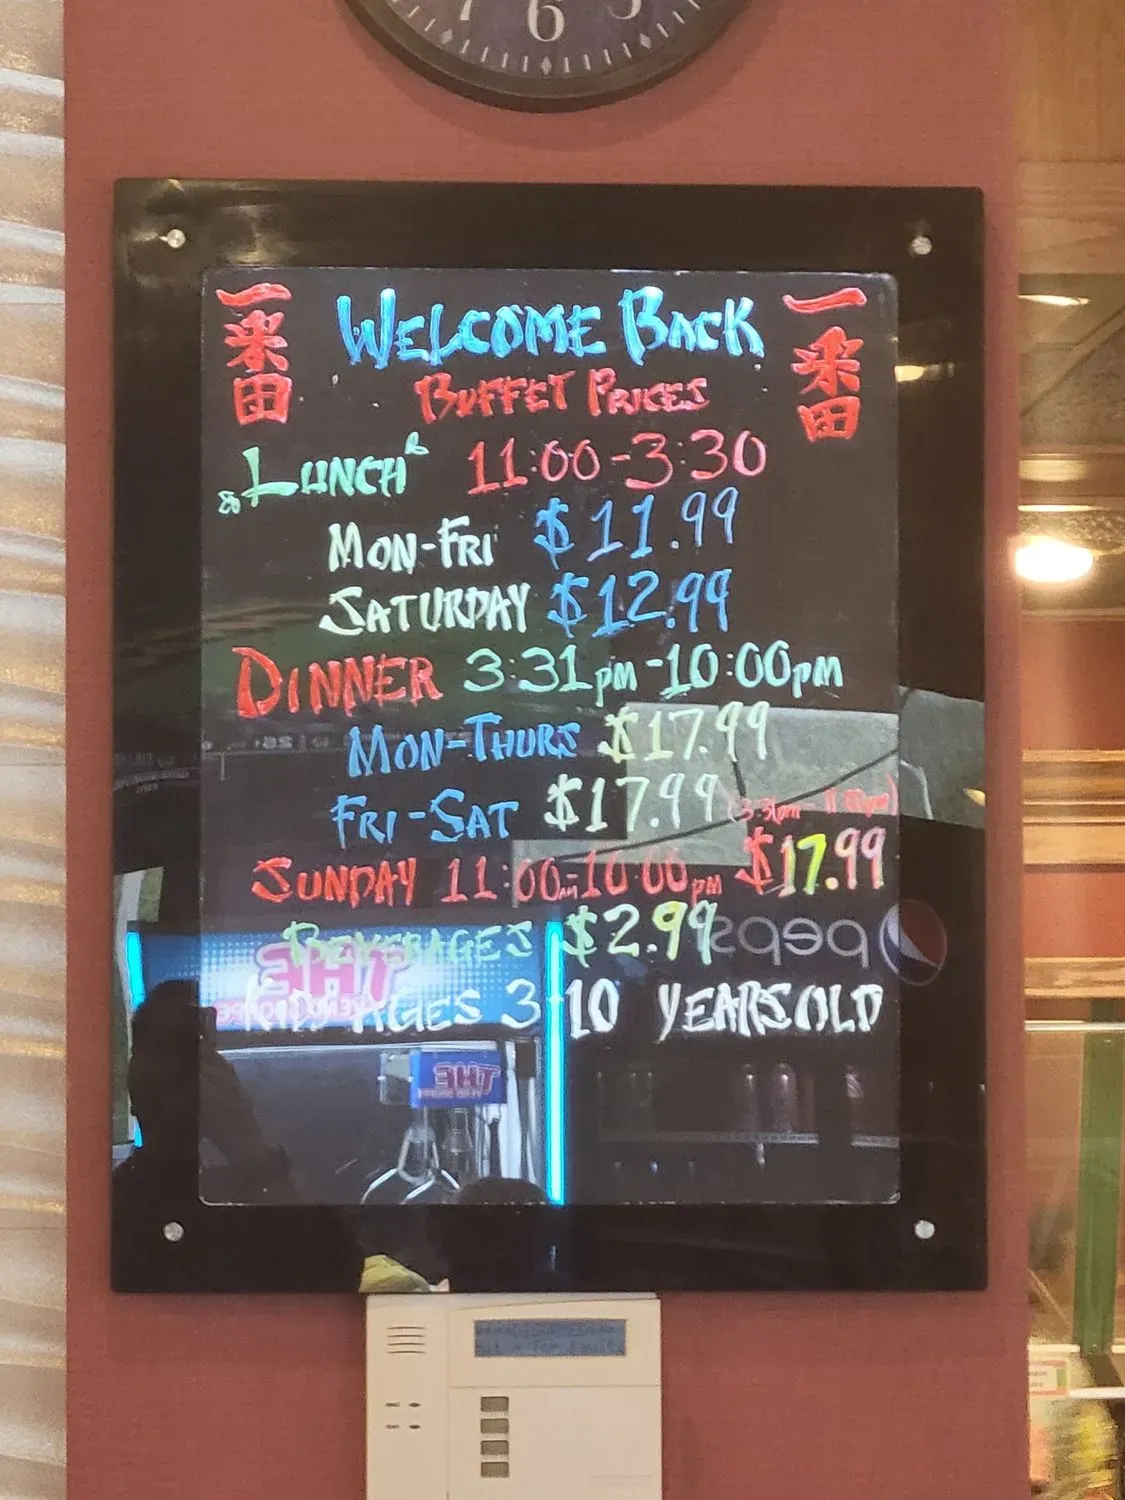 7 6 5
一番
WELCOME BACK
一番
BUFFET PRICES
LUNCH 11:00-3:30
MON-FRI $11.99
SATURDAY $12.99
DINNER 3:31pm-10:00pm
MON-THURS $17.99
FRI-SAT $17.99 (3:31pm-
SUNDAY 11:00am-10:00pm $17.99
BEVERAGES $2.99
pepsi
THE
KIDS AGES 3-10 YEARS OLD
THE